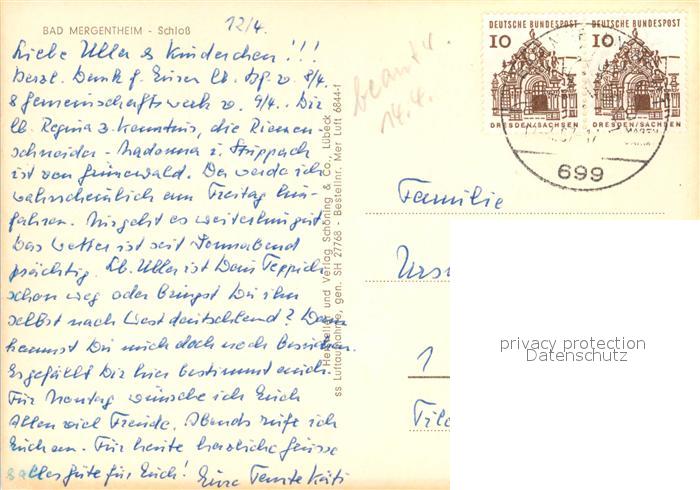 BAD MERGENTHEIM - Schloß
12/4.
Liebe Ulla & Kinderchen!!!
Herzl. Dank f. Euren lb. Bf. v. 8/4.
& Gemeinschaftswerk v. 9/4. Dir
lb. Regina z. Kenntnis, die Riemen-
schneider-Madonna i. Stuppach
ist von Grünewald. Da werde ich
wahrscheinlich am Freitag hin-
fahren. Mir geht es weiterhin gut.
Das Wetter ist seit Sonnabend
prächtig. Lb. Ulla ist Dein Teppich
schon weg oder bringst Du ihn
selbst nach Westdeutschland? Dann
kannst Du mich doch noch besuchen.
Es gefällt Dir hier bestimmt auch.
Für Montag wünsche ich Euch
Allen viel Freude. Abends rufe ich
Euch an. Für heute herzliche Grüsse
& alles Gute für Euch! Eure Tante Käti
beantw.
14.4.
Hersteller und Verlag Schöning & Co., Lübeck
ss Luftaufnahme, gen. SH 27768 - Bestellnr. Mer Luft 6844-f
DEUTSCHE BUNDESPOST
10
DRESDEN/SACHSEN
DEUTSCHE BUNDESPOST
10
DRESDEN/SACHSEN
699
Familie
Urs
1
privacy protection
Datenschutz